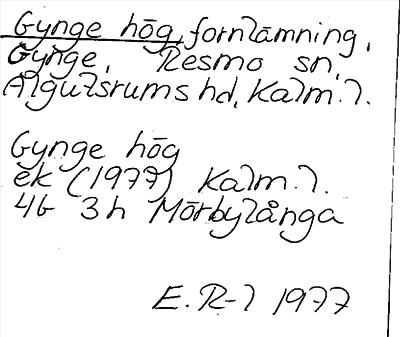 Gynge hög, fornlämning,
Gynge, Resmo sn,
Algutsrums hd, Kalm. l.
Gynge hög
ek (1977) Kalm. l.
4G 3h Mörbylånga
E. R-l 1977